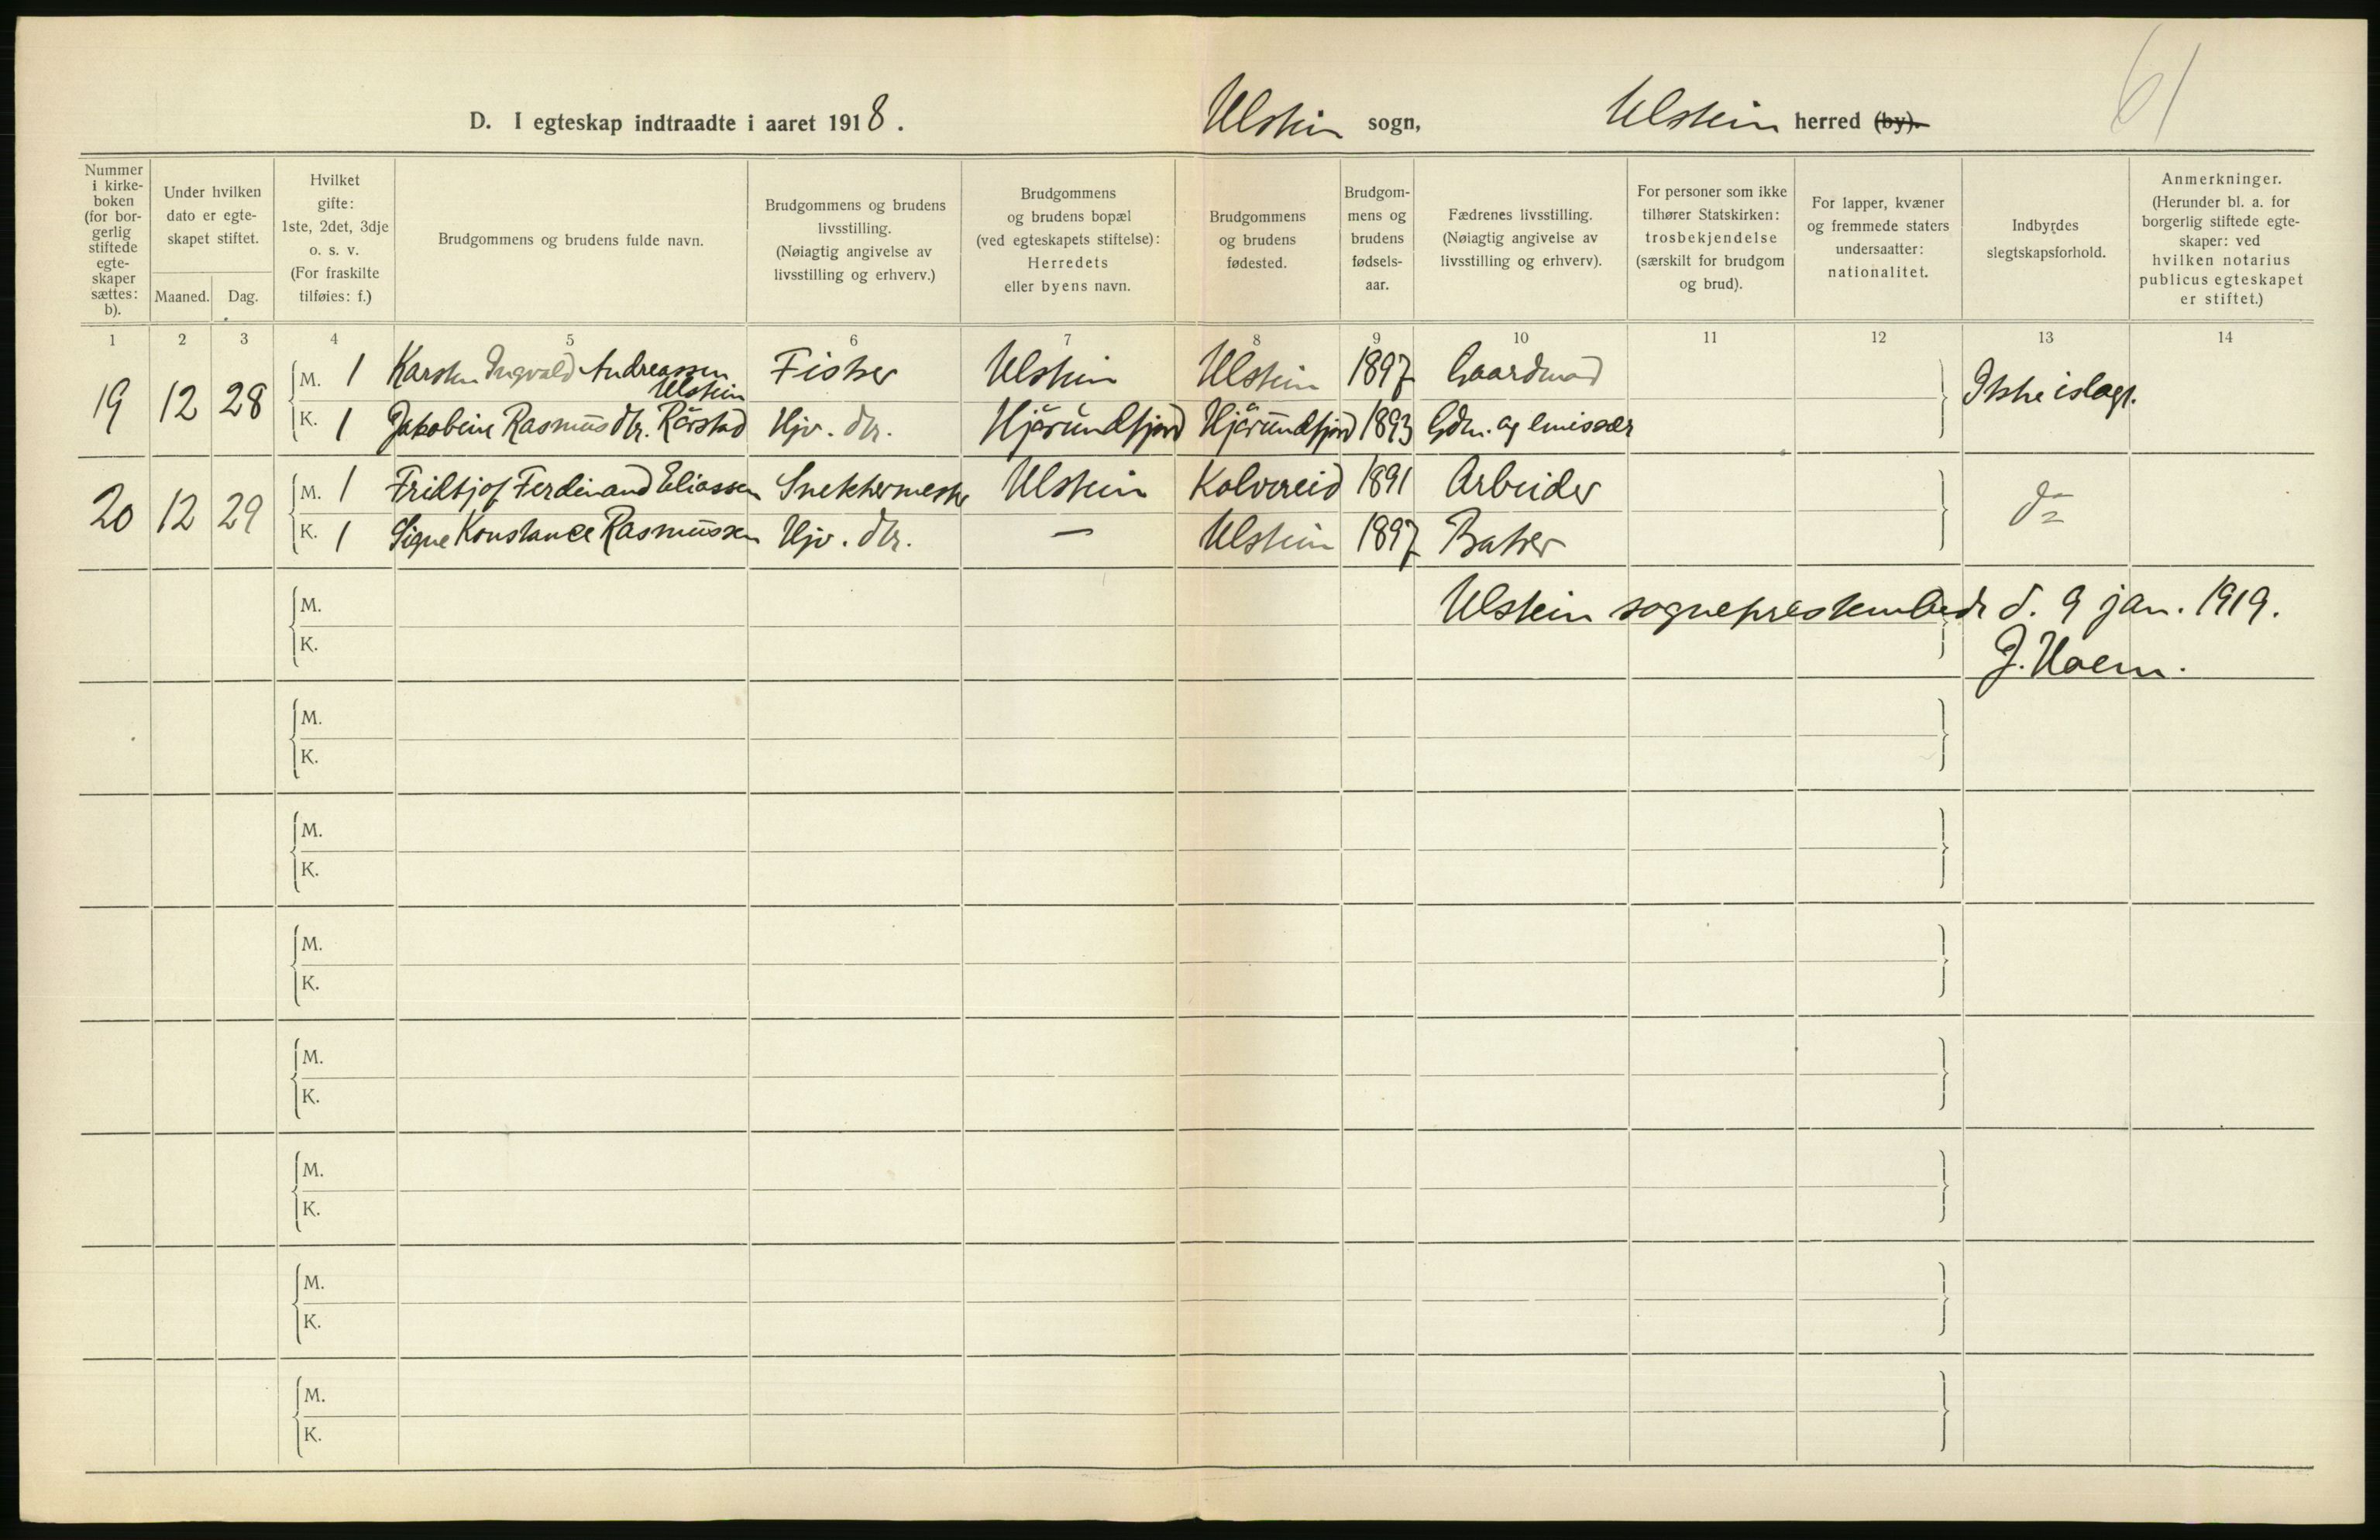 61
D. I egteskap indtraadte i aaret 1918. Ulstein sogn, Ulstein herred (by).
Nummer i kirkeboken (for borgerlig stiftede egteskaper sættes: b).
Under hvilken dato er egteskapet stiftet.
Maaned. Dag.
Hvilket gifte: 1ste, 2det, 3dje o. s. v. (For fraskilte tilføies: f.)
Brudgommens og brudens fulde navn.
Brudgommens og brudens livsstilling. (Nøiagtig angivelse av livsstilling og erhverv.)
Brudgommens og brudens bopæl (ved egteskapets stiftelse): Herredets eller byens navn.
Brudgommens og brudens fødested.
Brudgommens og brudens fødselsaar.
Fædrenes livsstilling. (Nøiagtig angivelse av livsstilling og erhverv).
For personer som ikke tilhører Statskirken: trosbekjendelse (særskilt for brudgom og brud).
For lapper, kvæner og fremmede staters undersaatter: nationalitet.
Indbyrdes slegtskapsforhold.
Anmerkninger. (Herunder bl. a. for borgerlig stiftede egteskaper: ved hvilken notarius publicus egteskapet er stiftet.)
1 2 3 4 5 6 7 8 9 10 11 12 13 14
19 12 28 M. 1 Karsten Ingvald Andreassen Ulstein Fisker Ulstein Ulstein 1897 Gaardmad Ikke islagt.
K. 1 Jakobine Rasmusdtr. Rörstad Hjv. dtr. Hjörundfjord Hjörundfjord 1893 Gdm. og emissær
20 12 29 M. 1 Fridtjof Ferdinand Eliassen Snekkermester Ulstein Kolvereid 1891 Arbeider do
K. 1 Signe Konstance Rasmussen Hjv. dtr. — Ulstein 1897 Baker
M. Ulstein sogneprestembede d. 9 jan. 1919.
K. J. Hoem.
M.
K.
M.
K.
M.
K.
M.
K.
M.
K.
M.
K.
M.
K.